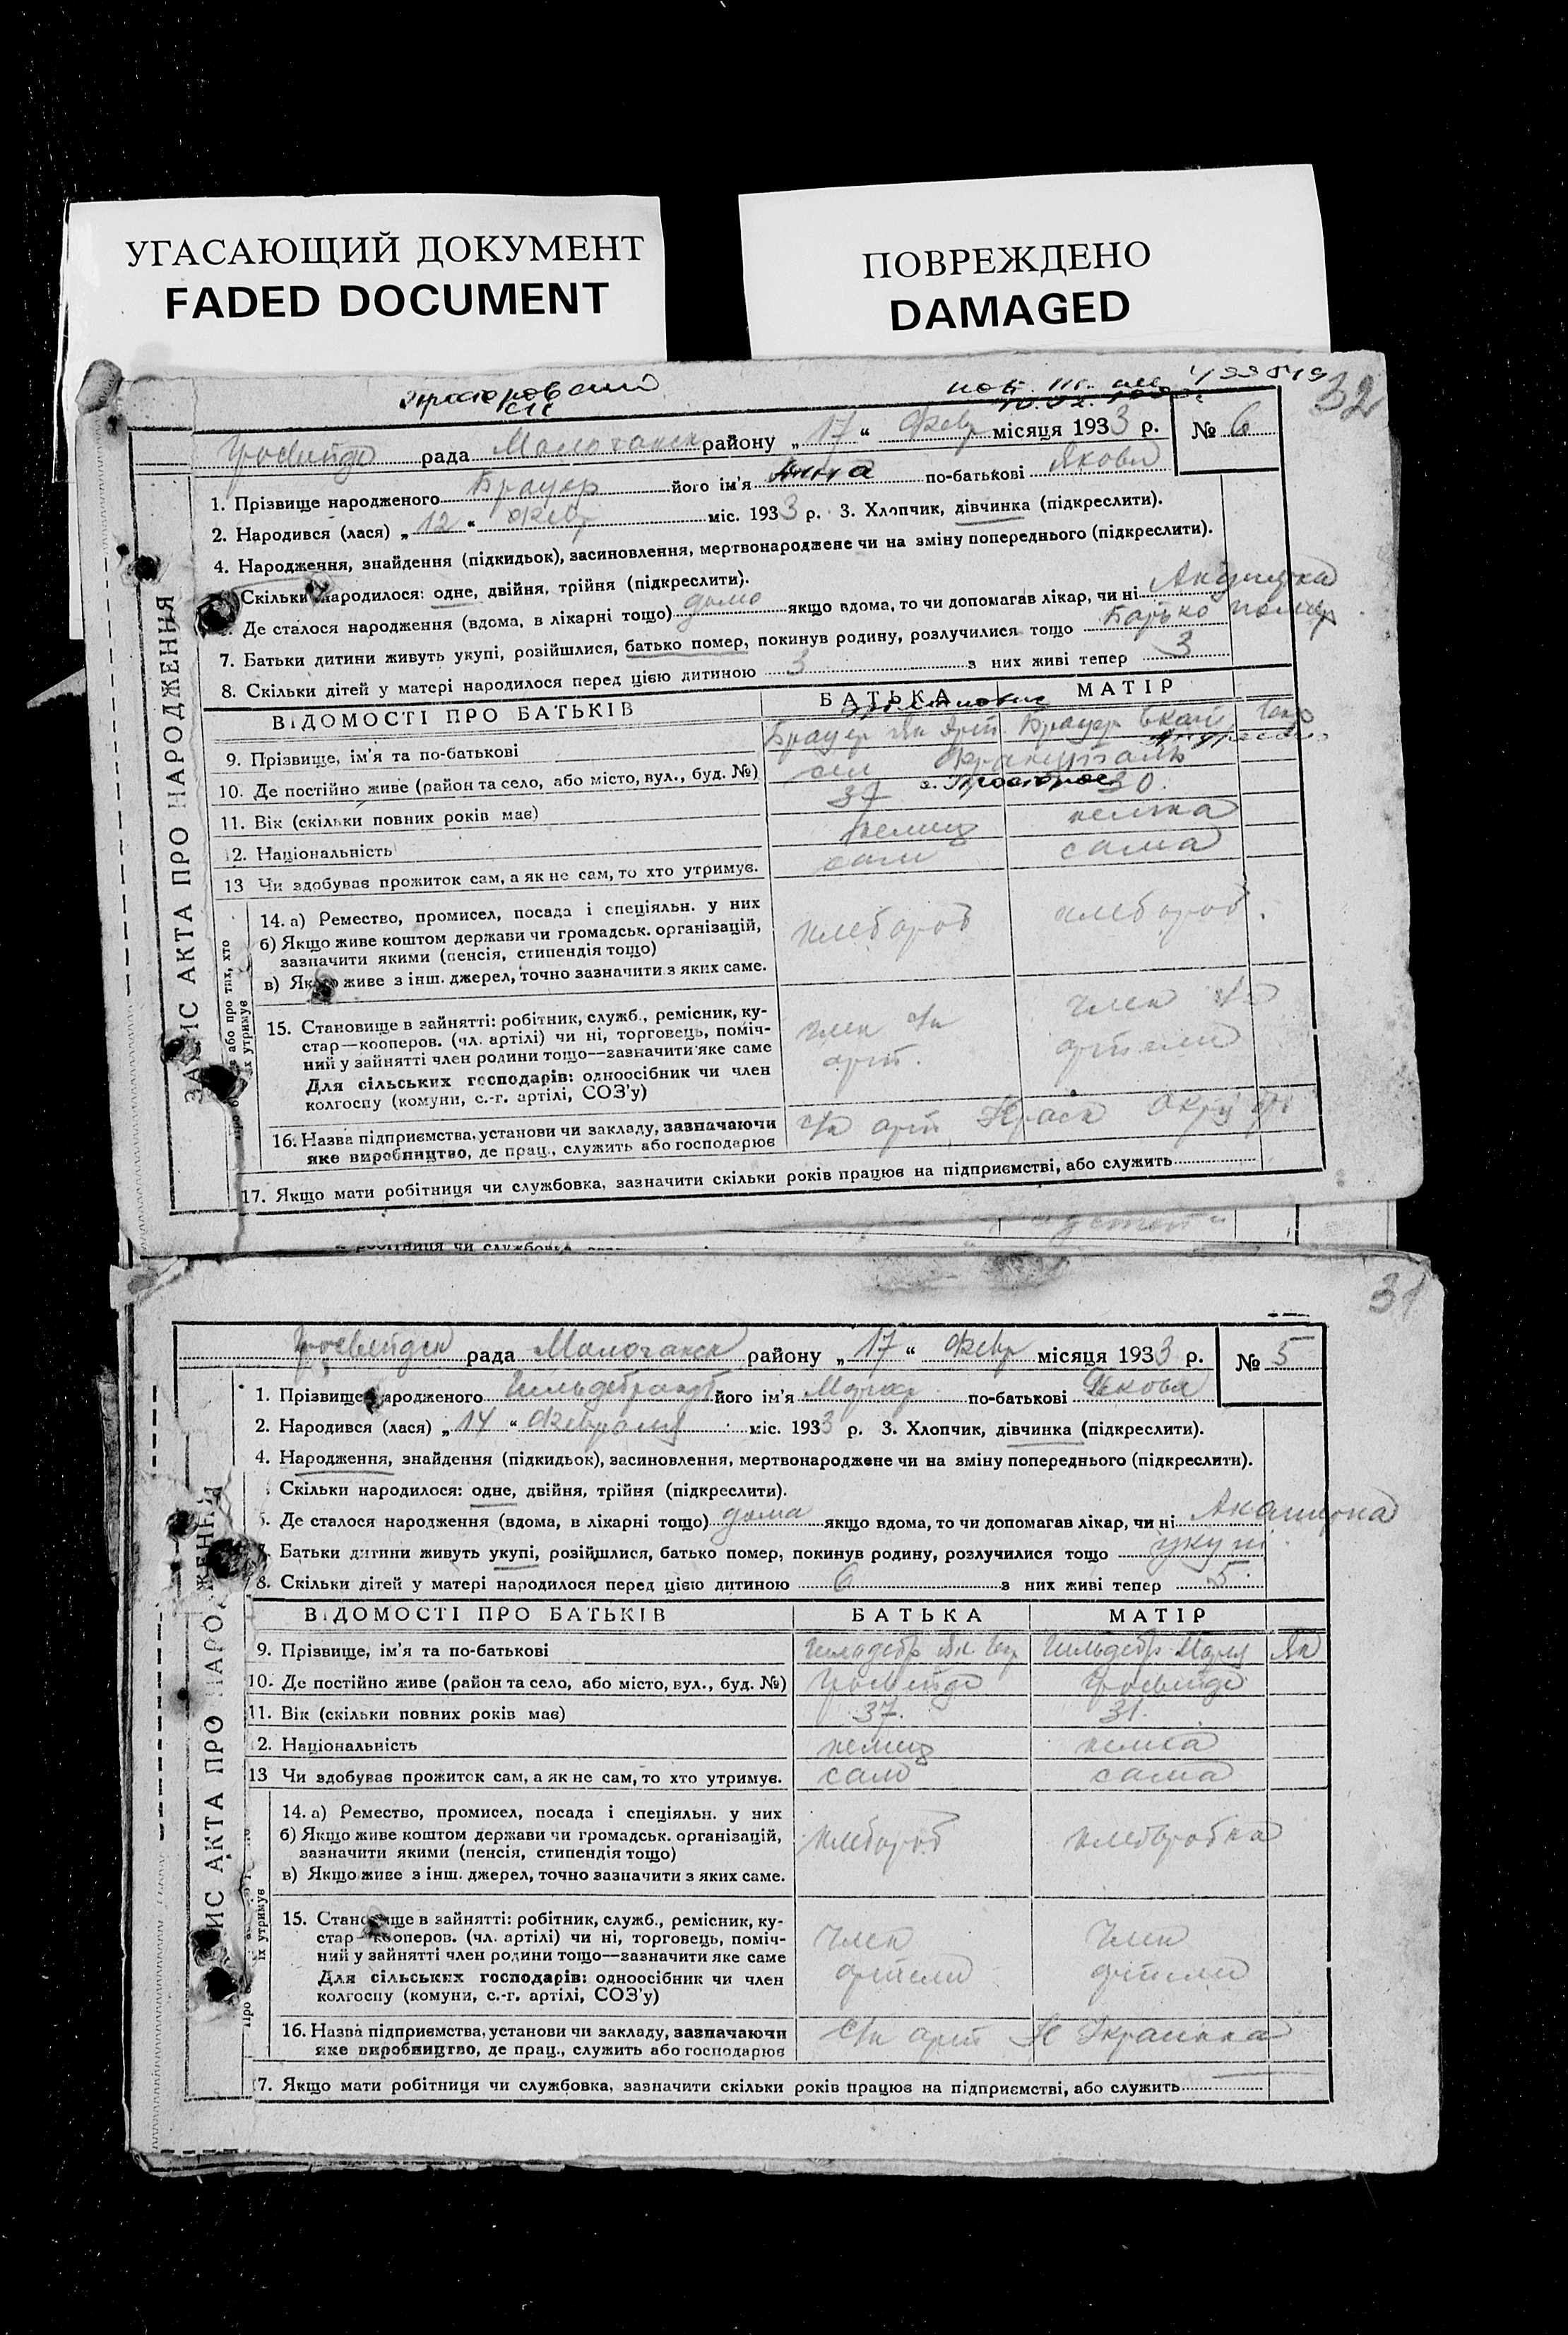 УГАСАЮЩИЙ ДОКУМЕНТ
FADED DOCUMENT
ПОВРЕЖДЕНО
DAMAGED
32
рада Молочанск району „ 17 “ Февр місяця 1933 р. № 6
1. Прізвище народженого Брауер його ім'я Анна по-батькові Яковл
2. Народився (лася) „ 12 “ Февр міс. 1933 р. 3. Хлопчик, дівчинка (підкреслити).
4. Народження, знайдення (підкидьок), засиновлення, мертвонароджене чи на зміну попереднього (підкреслити).
Скільки народилося: одне, двійня, трійня (підкреслити).
Де сталося народження (вдома, в лікарні тощо) дома якщо вдома, то чи допомагав лікар, чи ні Акушерка
7. Батьки дитини живуть укупі, розійшлися, батько помер, покинув родину, розлучилися тощо батько помер
8. Скільки дітей у матері народилося перед цією дитиною 3 з них живі тепер 3
ВІДОМОСТІ ПРО БАТЬКІВ БАТЬКА МАТІР
9. Прізвище, ім'я та по-батькові Брауер Як Брауер
10. Де постійно живе (район та село, або місто, вул., буд. №)
11. Вік (скільки повних років має) 37 30
12. Національність немец немка
13 Чи здобував прожиток сам, а як не сам, то хто утримує. сам сама
14. а) Ремество, промисел, посада і спеціяльн. у них
б) Якщо живе коштом держави чи громадськ. організацій, хлебороб хлебороб
зазначити якими (пенсія, стипендія тощо)
в) Якщо живе з інш. джерел, точно зазначити з яких саме.
15. Становище в зайнятті: робітник, служб., ремісник, ку-
стар—кооперов. (чл. артілі) чи ні, торговець, поміч- член с/х член с/х
ний у зайнятті член родини тощо—зазначити яке саме арт. артели
Для сільських господарів: одноосібник чи член
колгоспу (комуни, с.-г. артілі, СОЗ'у)
16. Назва підприємства, установи чи закладу, зазначаючи с/х арт
яке виробництво, де прац., служить або господарює
17. Якщо мати робітниця чи службовка, зазначити скільки років працює на підприємстві, або служить
ЗАПИС АКТА ПРО НАРОДЖЕННЯ
31
рада Молочанск району „ 17 “ Февр місяця 1933 р. № 5
1. Прізвище народженого Гильдебрандт його ім'я по-батькові Яковл
2. Народився (лася) „ 14 “ Февраля міс. 1933 р. 3. Хлопчик, дівчинка (підкреслити).
4. Народження, знайдення (підкидьок), засиновлення, мертвонароджене чи на зміну попереднього (підкреслити).
Скільки народилося: одне, двійня, трійня (підкреслити).
Де сталося народження (вдома, в лікарні тощо) дома якщо вдома, то чи допомагав лікар, чи ні Акушерка
Батьки дитини живуть укупі, розійшлися, батько помер, покинув родину, розлучилися тощо укупі
8. Скільки дітей у матері народилося перед цією дитиною 6 з них живі тепер 5
ВІДОМОСТІ ПРО БАТЬКІВ БАТЬКА МАТІР
9. Прізвище, ім'я та по-батькові Гильдебр Як Гильдебр Мария Як
10. Де постійно живе (район та село, або місто, вул., буд. №)
11. Вік (скільки повних років має) 37. 31.
12. Національність немец немка
13 Чи здобував прожиток сам, а як не сам, то хто утримує. сам сама
14. а) Ремество, промисел, посада і спеціяльн. у них
б) Якщо живе коштом держави чи громадськ. організацій, хлебороб хлеборобка
зазначити якими (пенсія, стипендія тощо)
в) Якщо живе з інш. джерел, точно зазначити з яких саме.
15. Становище в зайнятті: робітник, служб., ремісник, ку-
стар—кооперов. (чл. артілі) чи ні, торговець, поміч- член член
ний у зайнятті член родини тощо—зазначити яке саме артели артели
Для сільських господарів: одноосібник чи член
колгоспу (комуни, с.-г. артілі, СОЗ'у)
16. Назва підприємства, установи чи закладу, зазначаючи с/х арт Н Украинка
яке виробництво, де прац., служить або господарює
17. Якщо мати робітниця чи службовка, зазначити скільки років працює на підприємстві, або служить